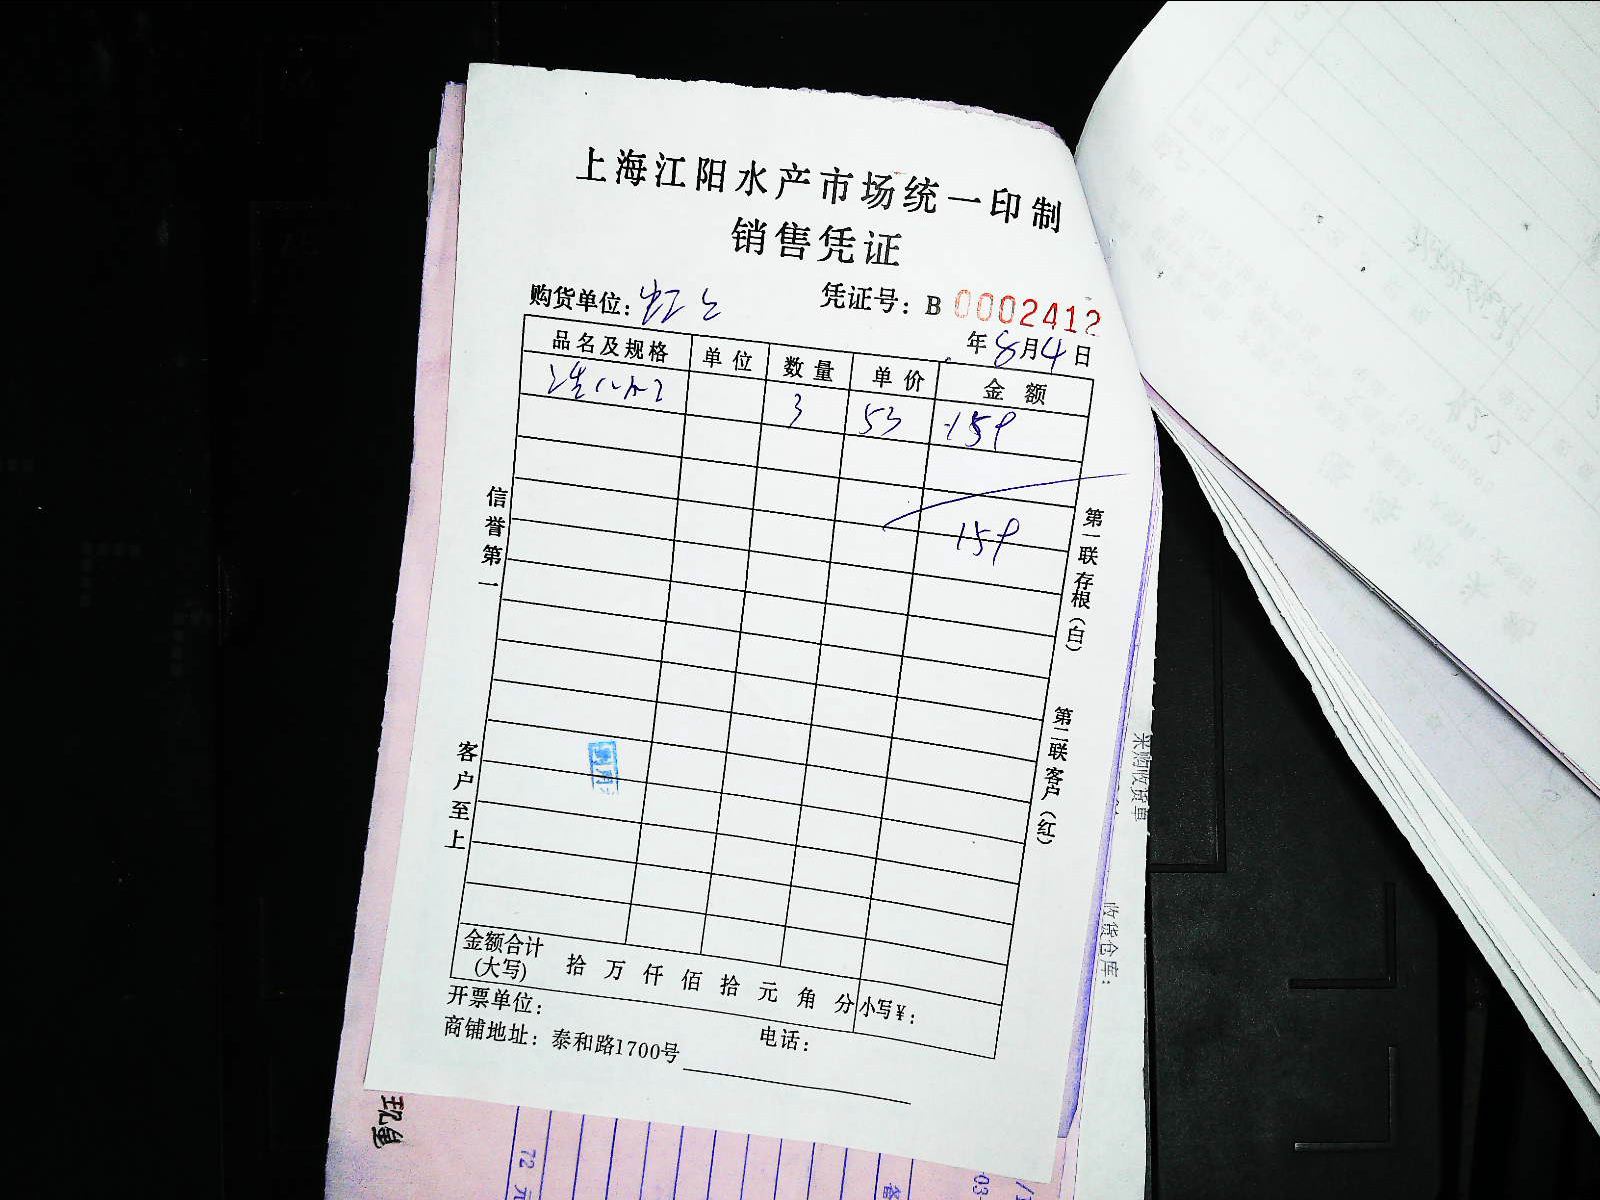 上海江阳水产市场统一印制
销售凭证
购货单位: 凭证号: B 0002412
年8月4日
品名及规格 单位 数量 单价 金额
3 53 159
159
信誉第一
客户至上
第一联存根(白)
第二联客户(红)
金额合计(大写) 拾 万 仟 佰 拾 元 角 分 小写¥:
开票单位:
商铺地址: 泰和路1700号 电话:
采购收货单
收货仓库:
72 元